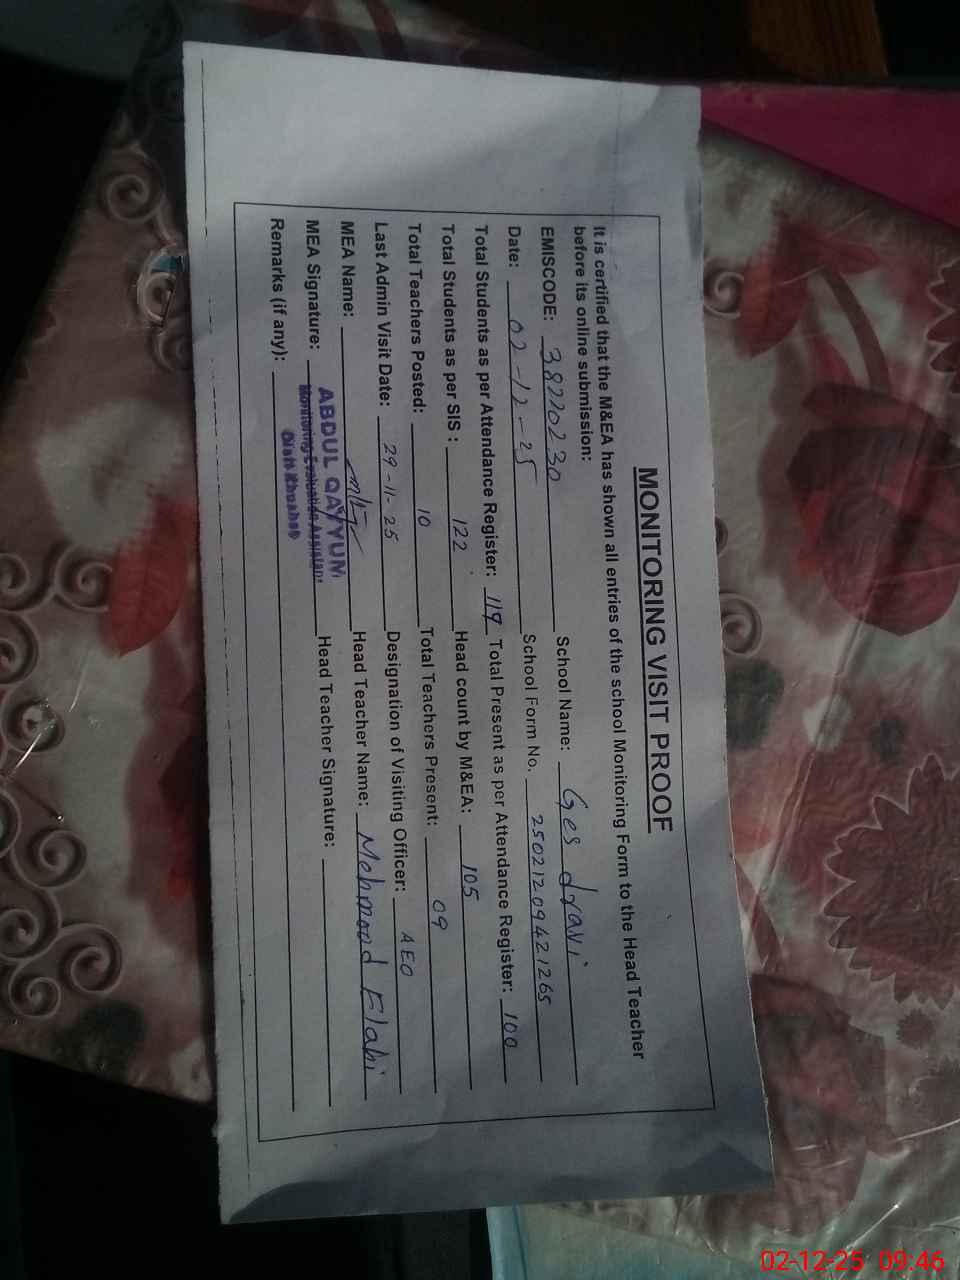 MONITORING VISIT PROOF
It is certified that the M&EA has shown all entries of the school Monitoring Form to the Head Teacher
before its online submission:
EMISCODE: 38220230 School Name: Ges dravi
Date: 02-12-25 School Form No. 25021209421265
Total Students as per Attendance Register: 119 Total Present as per Attendance Register: 100
Total Students as per SIS : 122 Head count by M&EA: 105
Total Teachers Posted: 10 Total Teachers Present: 09
Last Admin Visit Date: 29-11-25 Designation of Visiting Officer: AEO
MEA Name: Head Teacher Name: Mehmood Elahi
MEA Signature: Head Teacher Signature:
ABDUL QAYYUM
Monitoring Evaluation Assistant
Distt Khushab
Remarks (if any):
02-12-25 09:46